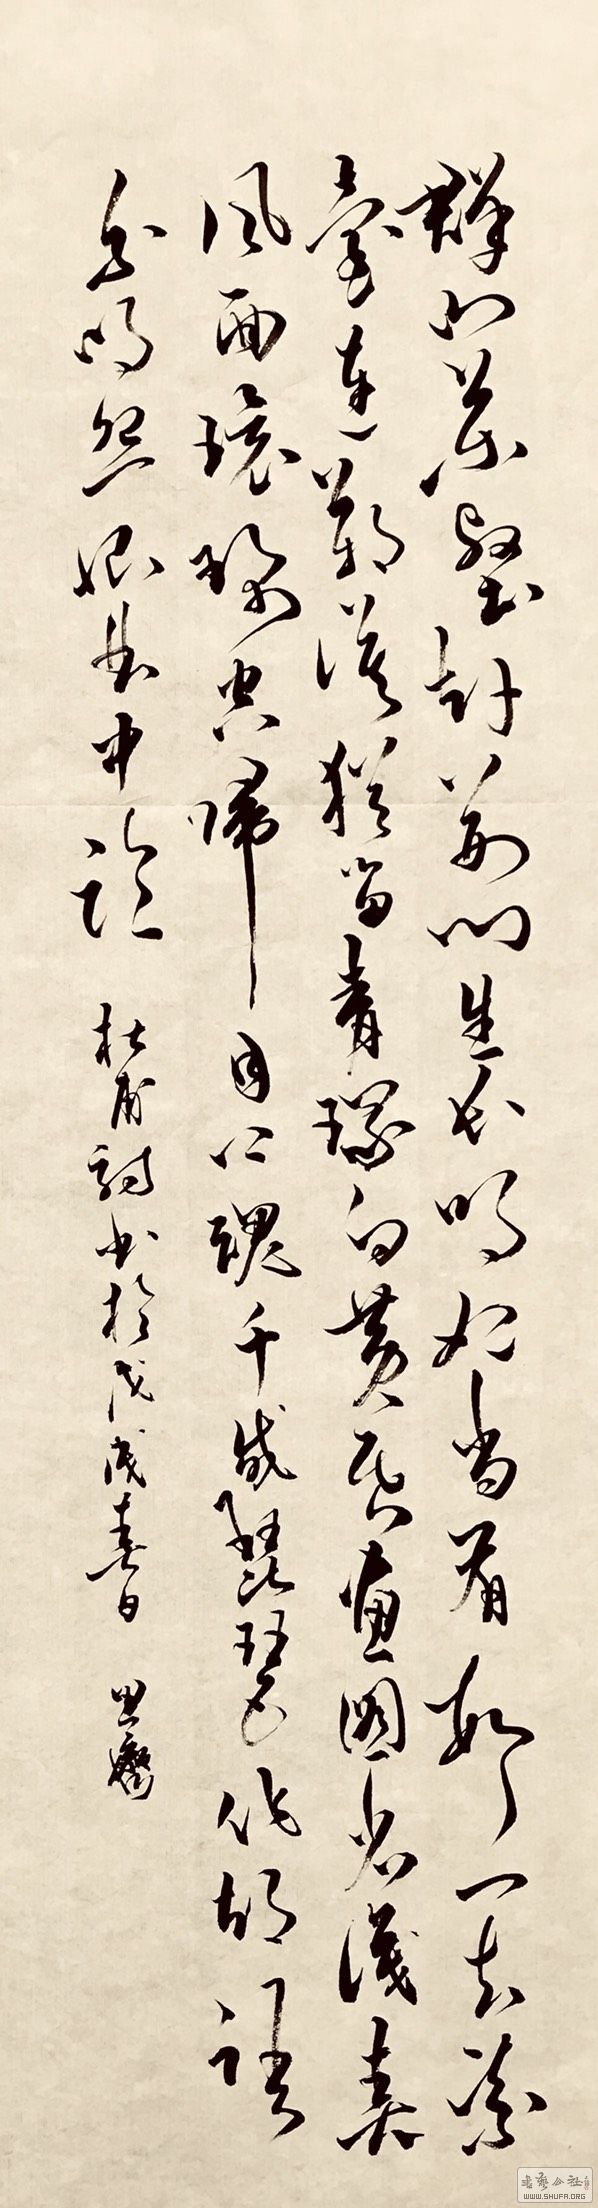 群山萬壑赴荆門生長明妃尚有村一去紫
臺連朔漠獨留青塚向黄昏畫圖省識春
風面環珮空歸月夜魂千載琵琶作胡語
分明怨恨曲中論 杜甫詩書於戊戌春日
書藝公社
WWW.SHUFA.ORG